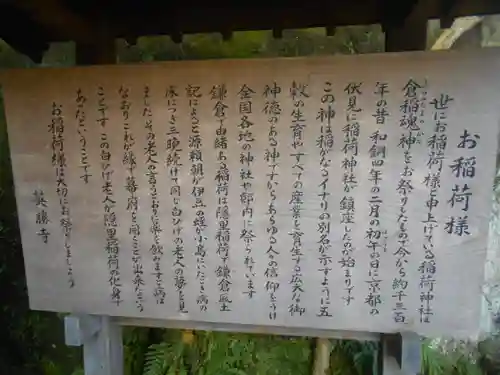 お稲荷様
世にお稲荷様と申上げている稲荷神社は
倉稲魂神をお祭りしたもので今から約千三百
年の昔 和銅四年の二月の初午の日に京都の
伏見に稲荷神社が鎮座したのが始まりです
この神は稲がなるイナリの別名が示すように五
穀の生育やすべての産業を育生する広大な御
神徳のある神ですからあらゆる人々の信仰をうけ
全国各地の神社や邸内に祭られています
鎌倉で由緒ある稲荷は隠里稲荷で鎌倉風土
記によると源頼朝が伊豆の蛭が小島にいたころ病の
床につき三晩続けて同じ白ひげの老人の夢を見
ました その老人の言うとおりに薬を飲みますと病は
なおりこれが縁で幕府を開くことが出来たという
ことです この白ひげ老人が隠里稲荷の化身で
あったということです
お稲荷様は大切にお祭りしましょう
英勝寺